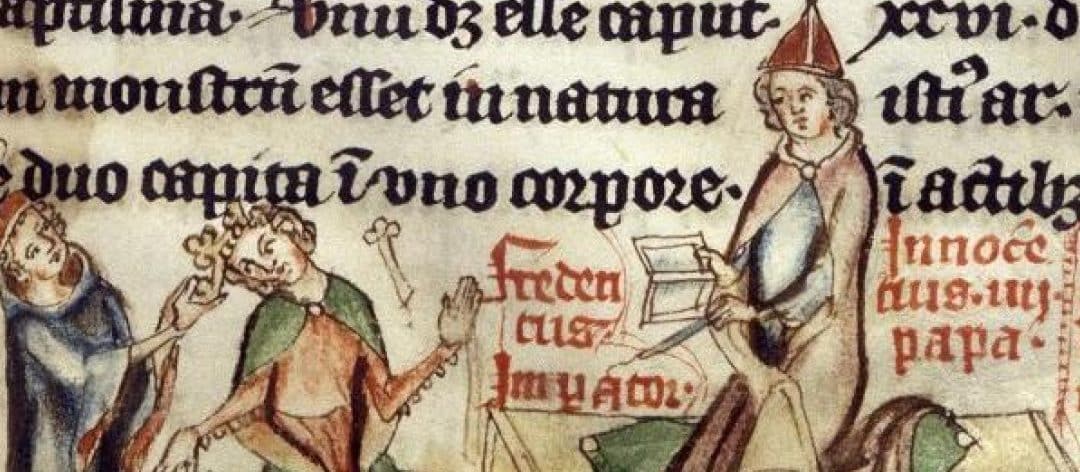 Unū dʒ esse caput· xxvi· d
monstrū esset in natura istiꝰ ar·
duo capita ī uno corpore· ī actibʒ
Frederi
cus
Imꝑator·
Innocē
cius· iiii·
papa·